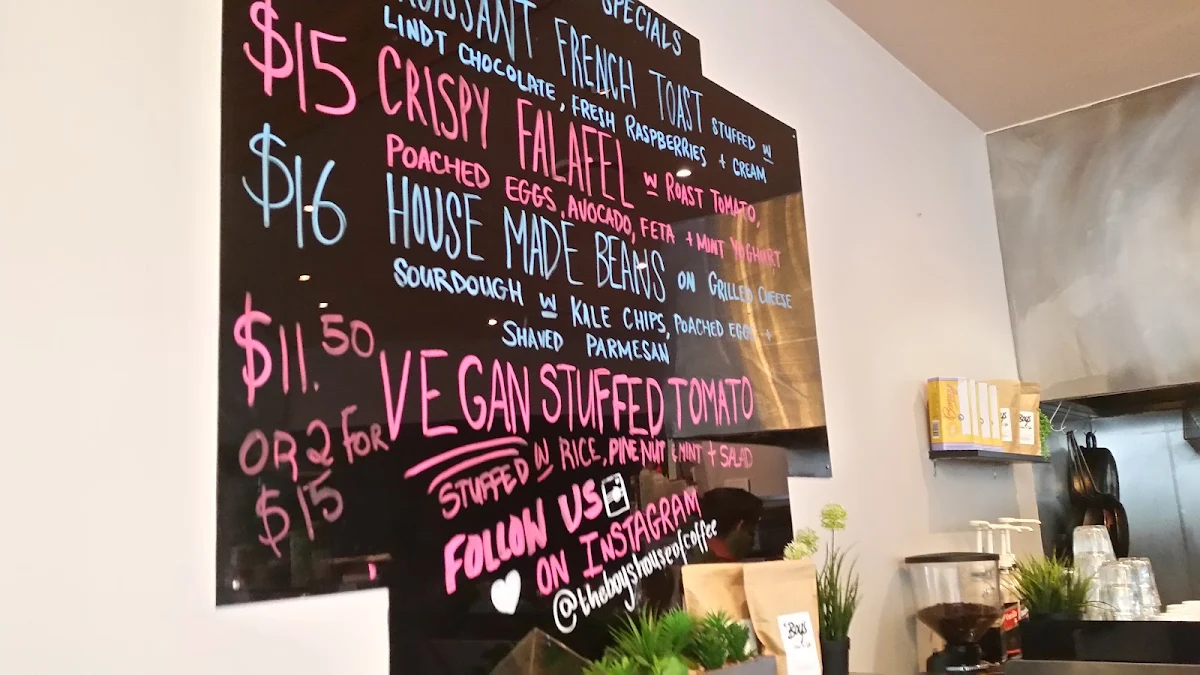 SPECIALS
CROISSANT FRENCH TOAST STUFFED W
LINDT CHOCOLATE, FRESH RASPBERRIES + CREAM
$15 CRISPY FALAFEL W ROAST TOMATO,
POACHED EGGS, AVOCADO, FETA + MINT YOGHURT
$16 HOUSE MADE BEANS ON GRILLED CHEESE
SOURDOUGH W KALE CHIPS, POACHED EGGS +
SHAVED PARMESAN
$11.50 VEGAN STUFFED TOMATO
OR 2 FOR $15
STUFFED W RICE, PINENUT & MINT + SALAD
FOLLOW US
ON INSTAGRAM
@theboyshouseofcoffee
Boys
Boys
Boys